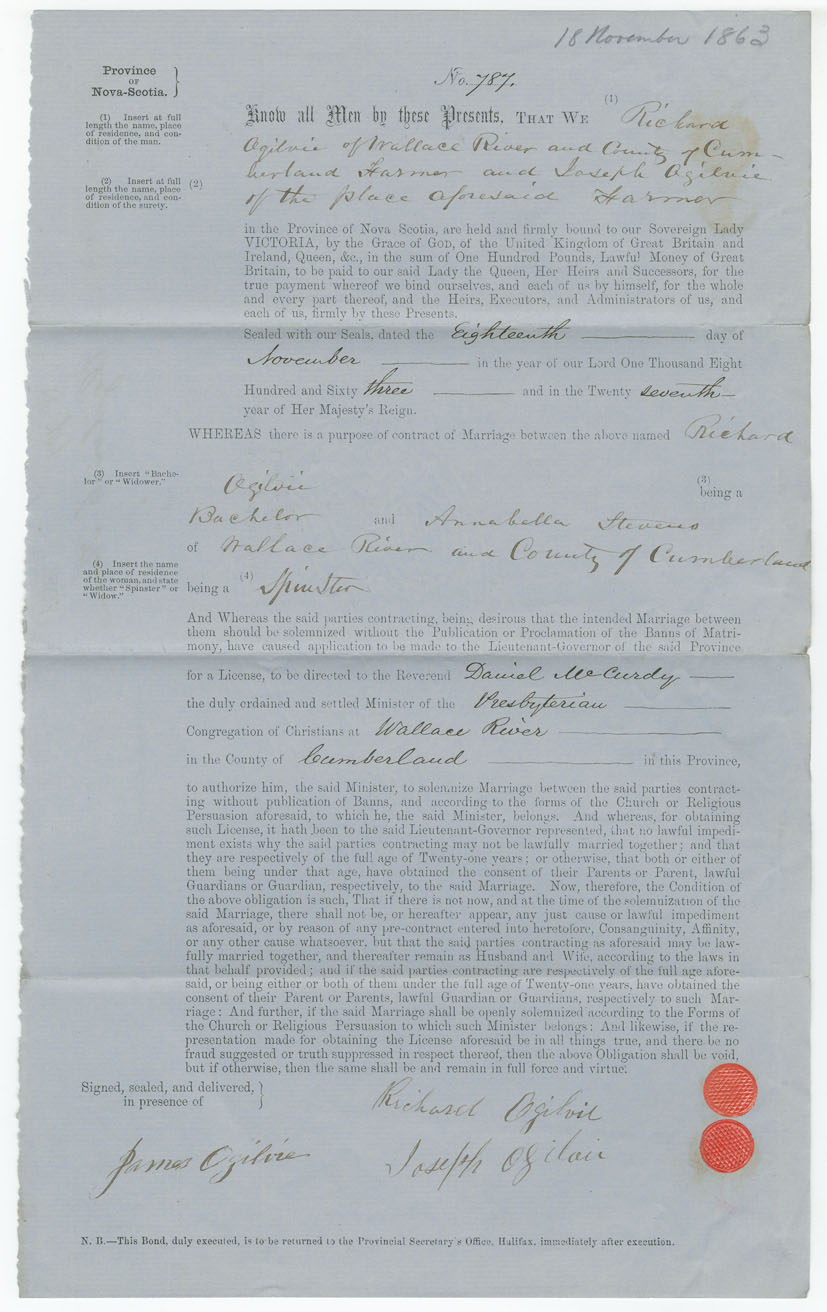 18 November 1863
Province
OF
Nova-Scotia.
No. 787.
(1) Insert at full
length the name, place
of residence, and con-
dition of the man.
Know all Men by these Presents, THAT WE (1) Richard
Ogilvie of Wallace River and County of Cum-
berland Farmer and Joseph Ogilvie
(2) Insert at full
length the name, place
of residence, and con-
dition of the surety.
(2) of the place aforesaid Farmer
in the Province of Nova Scotia, are held and firmly bound to our Sovereign Lady
VICTORIA, by the Grace of GOD, of the United Kingdom of Great Britain and
Ireland, Queen, &c., in the sum of One Hundred Pounds, Lawful Money of Great
Britain, to be paid to our said Lady the Queen, Her Heirs and Successors, for the
true payment whereof we bind ourselves, and each of us by himself, for the whole
and every part thereof, and the Heirs, Executors, and Administrators of us, and
each of us, firmly by these Presents.
Sealed with our Seals, dated the Eighteenth day of
November in the year of our Lord One Thousand Eight
Hundred and Sixty three and in the Twenty seventh
year of Her Majesty's Reign.
WHEREAS there is a purpose of contract of Marriage between the above named Richard
(3) Insert "Bache-
lor" or "Widower."
Ogilvie (3) being a
Bachelor and Annabella Stevens
of Wallace River and County of Cumberland
(4) Insert the name
and place of residence
of the woman, and state
whether "Spinster" or
"Widow."
being a (4) Spinster
And Whereas the said parties contracting, being desirous that the intended Marriage between
them should be solemnized without the Publication or Proclamation of the Banns of Matri-
mony, have caused application to be made to the Lieutenant-Governor of the said Province
for a License, to be directed to the Reverend Daniel McCurdy
the duly ordained and settled Minister of the Presbyterian
Congregation of Christians at Wallace River
in the County of Cumberland in this Province,
to authorize him, the said Minister, to solemnize Marriage between the said parties contract-
ing without publication of Banns, and according to the forms of the Church or Religious
Persuasion aforesaid, to which he, the said Minister, belongs. And whereas, for obtaining
such License, it hath been to the said Lieutenant-Governor represented, that no lawful impedi-
ment exists why the said parties contracting may not be lawfully married together; and that
they are respectively of the full age of Twenty-one years; or otherwise, that both or either of
them being under that age, have obtained the consent of their Parents or Parent, lawful
Guardians or Guardian, respectively, to the said Marriage. Now, therefore, the Condition of
the above obligation is such, That if there is not now, and at the time of the solemnization of the
said Marriage, there shall not be, or hereafter appear, any just cause or lawful impediment
as aforesaid, or by reason of any pre-contract entered into heretofore, Consanguinity, Affinity,
or any other cause whatsoever, but that the said parties contracting as aforesaid may be law-
fully married together, and thereafter remain as Husband and Wife, according to the laws in
that behalf provided; and if the said parties contracting are respectively of the full age afore-
said, or being either or both of them under the full age of Twenty-one years, have obtained the
consent of their Parent or Parents, lawful Guardian or Guardians, respectively to such Mar-
riage: And further, if the said Marriage shall be openly solemnized according to the Forms of
the Church or Religious Persuasion to which such Minister belongs: And likewise, if the re-
presentation made for obtaining the License aforesaid be in all things true, and there be no
fraud suggested or truth suppressed in respect thereof, then the above Obligation shall be void,
but if otherwise, then the same shall be and remain in full force and virtue.
Signed, sealed, and delivered,
in presence of
Richard Ogilvie
James Ogilvie
Joseph Ogilvie
N. B.—This Bond, duly executed, is to be returned to the Provincial Secretary's Office, Halifax, immediately after execution.